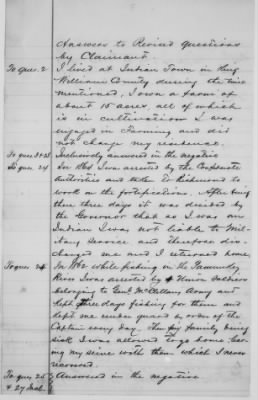 Answers to Revised Questions
by Claimant.
To ques. 2 I lived at Indian Town in King
William County during the time
mentioned, I own a farm of
about 15 acres, all of which
is in cultivation I was
engaged in Farming and did
not change my residence.
Inclusively answered in the negative
In 1862 I was arrested by the Confederate
Authorities and taken to Richmond to
work on the fortifications. After being
there three days it was decided by
the Governor that as I was an
Indian I was not liable to Mil-
itary Service and therefore dis-
charged me and I returned home.
In 1862 while fishing in the Pamunkey
River I was arrested by Union soldiers
belonging to Genl McClellans Army and
kept three days fishing for them and
kept me under guard by order of the
Captain every day. My family being
sick I was allowed to go home leav-
ing my seine with them which I never
recovered.
To ques 25 Answered in the negative
& 27 Incl.